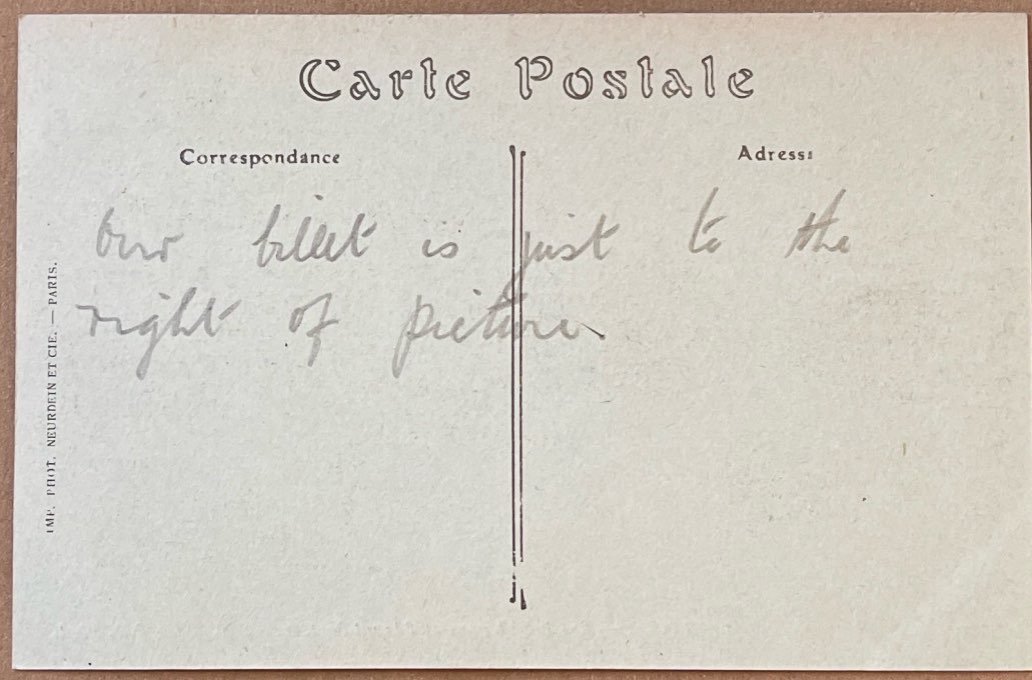 Carte Postale
Correspondance
Adresse
Our billet is just to the
right of picture
IMP. PHOT. NEURDEIN ET CIE. — PARIS.